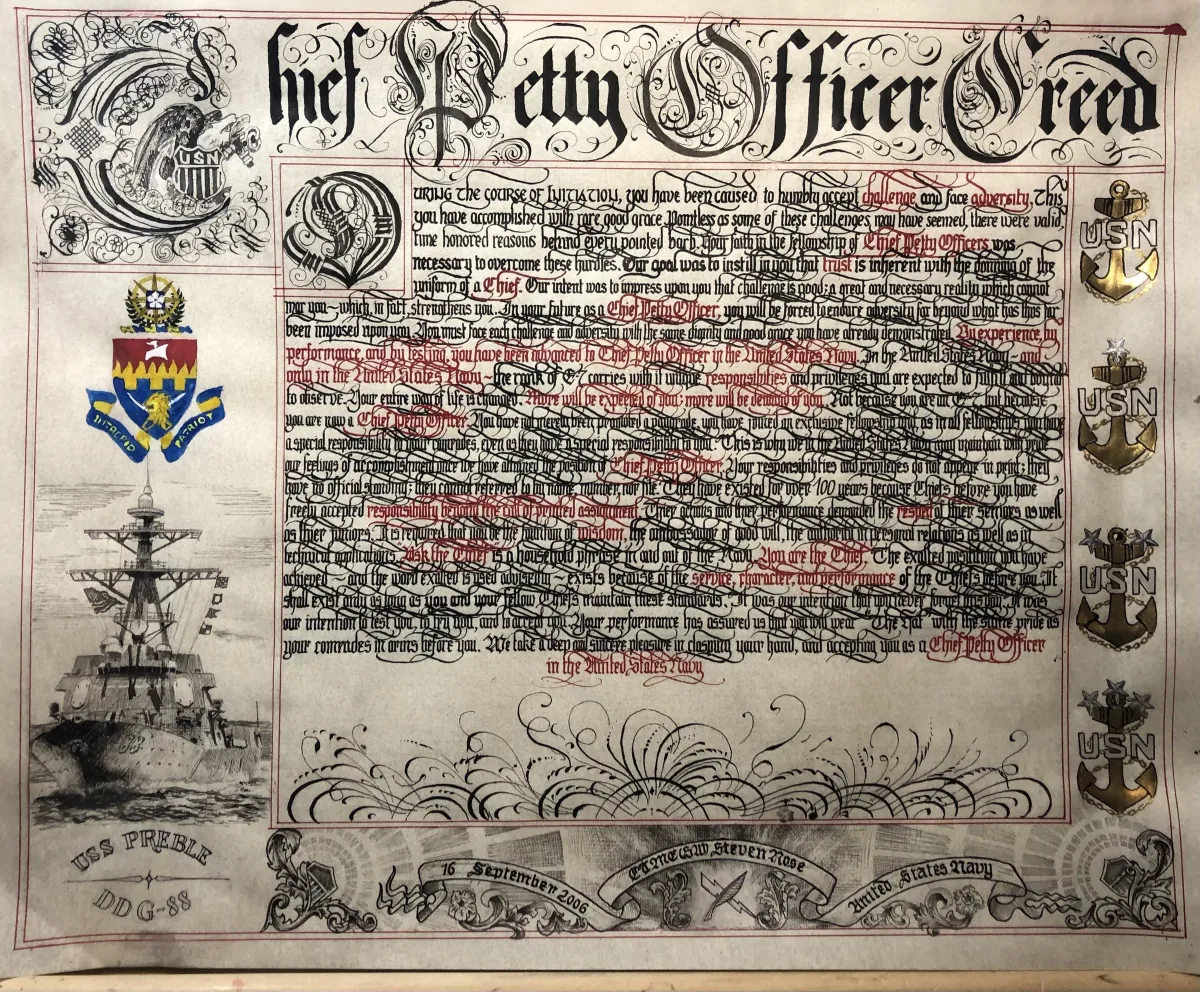 Chief Petty Officer Creed
USN
During the course of Initiation, you have been caused to humbly accept challenge and face adversity. This
you have accomplished with rare good grace. Pointless as some of these challenges may have seemed, there were valid,
time honored reasons behind every pointed barb. Your faith in the fellowship of Chief Petty Officers was
necessary to overcome these hurdles. Our goal was to instill in you that trust is inherent with the donning of the
uniform of a Chief. Our intent was to impress upon you that challenge is good; a great and necessary reality which cannot
mar you - which, in fact, strengthens you. In your future as a Chief Petty Officer, you will be forced to endure adversity far beyond what has thus far
been imposed upon you. You must face each challenge and adversity with the same dignity and good grace you have already demonstrated. By experience, by
performance, and by testing, you have been advanced to Chief Petty Officer in the United States Navy. In the United States Navy - and
only in the United States Navy - the rank of E7 carries with it unique responsibilities and privileges you are expected to fulfill and bound
to observe. Your entire way of life is changed. More will be expected of you; more will be demand of you. Not because you are an E7 but because
you are now a Chief Petty Officer. You have not merely been promoted a paygrade, you have joined an exclusive fellowship and, as in all fellowships, you have
a special responsibility to your comrades, even as they have a special responsibility to you. This is why we in the United States Navy may maintain with pride
our feelings of accomplishment once we have attained the position of Chief Petty Officer. Your responsibilities and privileges do not appear in print; they
have no official standing; they cannot referred to by name, number, nor file. They have existed for over 100 years because Chiefs before you have
freely accepted responsibility beyond the call of printed assignment. Their actions and their performance demanded the respect of their seniors as well
as their juniors. It is required that you be the fountain of wisdom, the ambassador of good will, the authority in personal relations as well as in
technical applications. Ask the Chief is a household phrase in and out of the Navy. You are the Chief. The exalted position you have
achieved - and the word exalted is used advisedly - exists because of the service, character, and performance of the Chiefs before you. It
shall exist only as long as you and your fellow Chiefs maintain these standards. It was our intention that you never forget this day. It was
our intention to test you, to try you, and to accept you. Your performance has assured us that you will wear "The Hat" with the same pride as
your comrades in arms before you. We take a deep and sincere pleasure in clasping your hand, and accepting you as a Chief Petty Officer
in the United States Navy
INTREPID PATRIOT
88
USS PREBLE
DDG-88
USN
USN
USN
USN
16 September 2006
Steven Rose
United States Navy